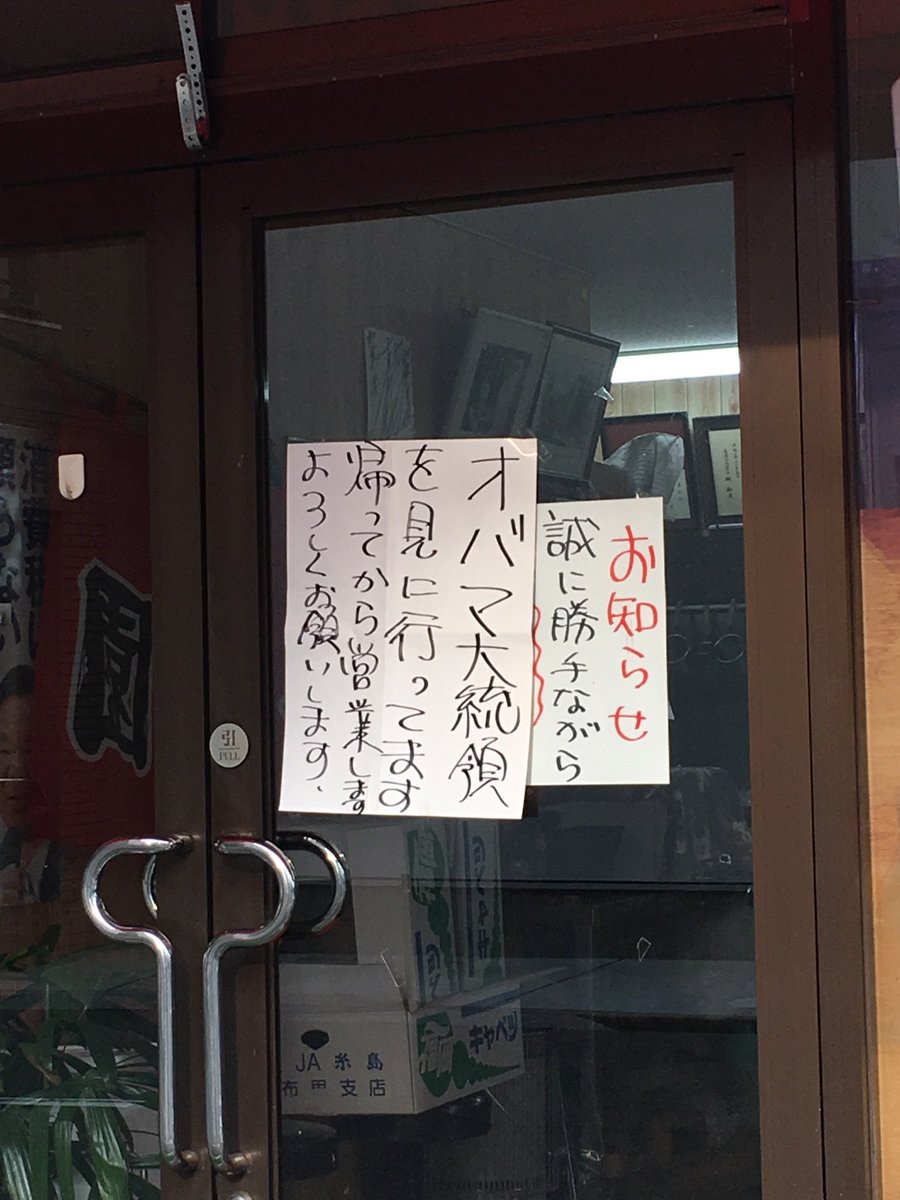 お知らせ
誠に勝手ながら
オバマ大統領
を見に行ってます
帰ってから営業します
よろしくお願いします、
引
PULL
JA糸島
キャベツ